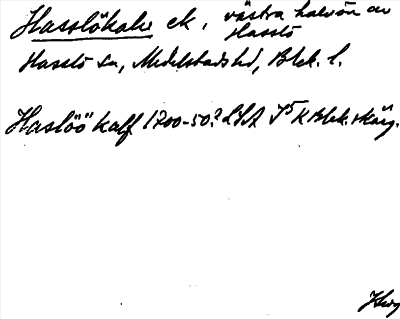 Hasslökalv ek. västra halvön av
Hasslö
Hasslö sn, Medelstads hd, Blek. l.
Haslöö kalf 1700-50? LSA I5 K Blek. skärg.